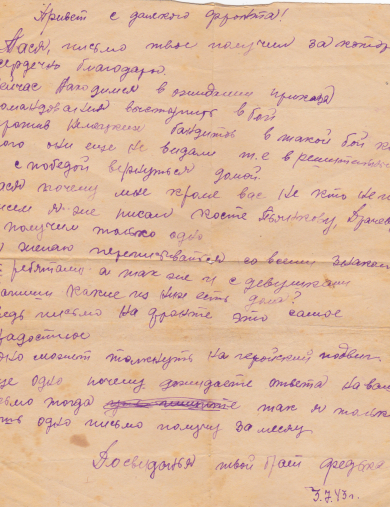 Привет с далкого фронта!
Вася, письмо твое получил за котор
сердечно благодарю.
ейчас находимся в ожидании приказа
омандования выступить в бой
ротив немецких бандитов в такой бой ка
ого они еще не видали т.е в решительны
с победой вернуться домой.
ася почему мне кроме вас не кто не п
ишем я же писал Косте
получил только одно
желаю переписываться со всеми знаком
ребятами а так же и с девушками
апиши какие из них есть дома?
едь письмо на фронте это самое
радостное
оно может толкнуть на геройский подвиг.
ще одно почему дожидаете ответа на ваш
сьмо тогда так я только
ть одно письмо получу за месяц
Досвиданья твой брат
3.7.43г.